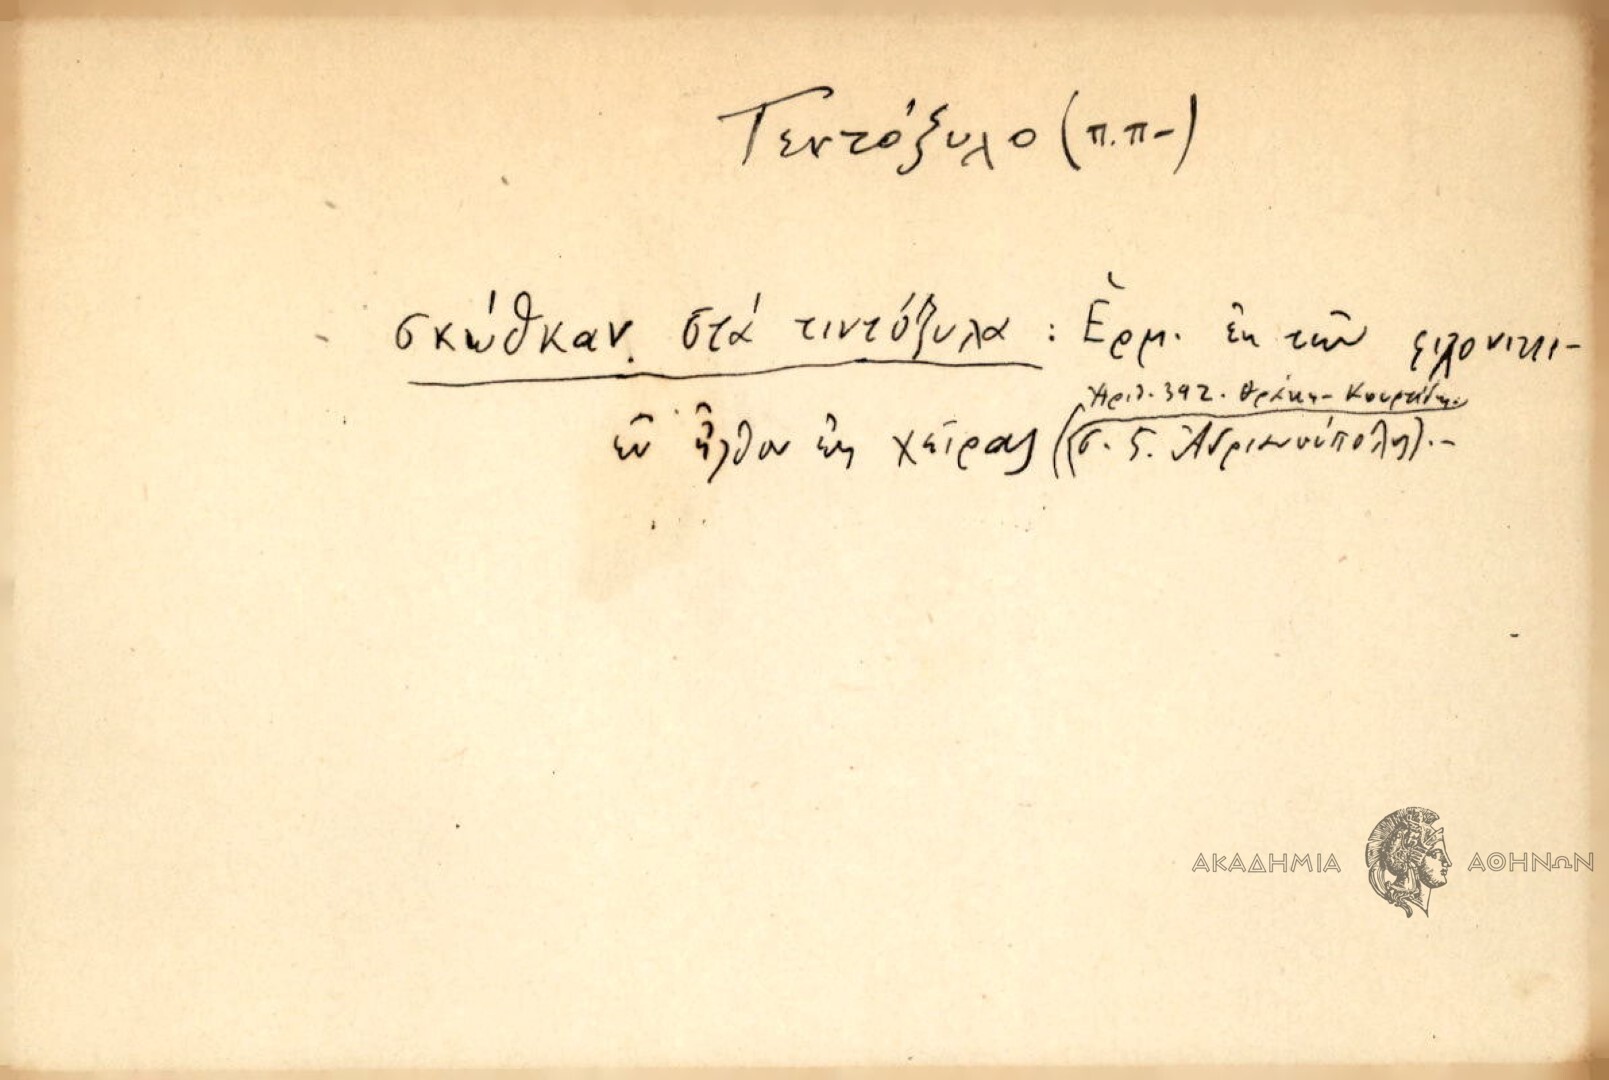 Τεντόξυλο (π.π-)
σκώθκαν στά τιντόξυλα : Ἑρμ. ἐκ τῶν φιλονικι-
ῶν ἦλθον εἰς χεῖρας
Ἀριθ. 392. Θράκη - Κουρτίδης
(σ. 5. Ἀδριανούπολις).-
ΑΚΑΔΗΜΙΑ ΑΘΗΝΩΝ